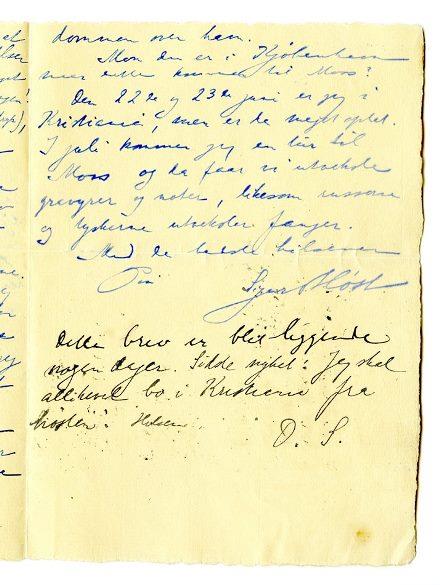 dommen over ham.
Mon du er i Kjøbenhavn
naar kommer til Moss?
Den 22de og 23de juni er jeg i
Kristiania, men er da meget optat.
I juli kommer jeg en tur til
Moss og da faar vi utveksle
gravyrer og noter, likesom russerne
og tyskerne utveksler fanger.
Med de bedste hilsener
Din Sigurd Høst
Dette brev er blit liggende
nogen dager. Sidste nyhet: Jeg skal
allikevel bo i Kristiania fra
høsten. Hilsen
D. S.